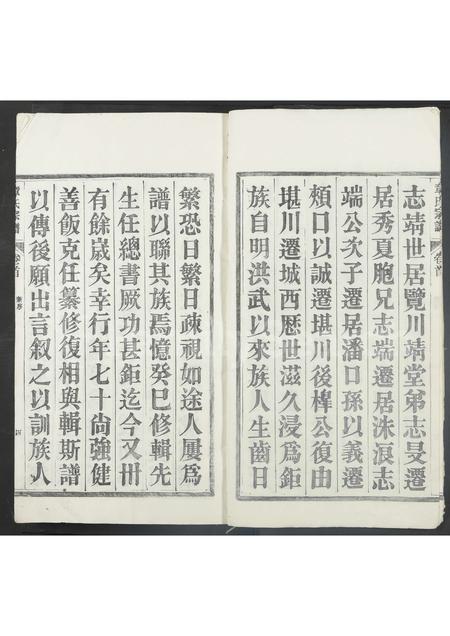 章氏宗譜 卷首
志靖世居覽川靖堂弟志旻遷
居秀夏胞兄志端遷居洙湨志
端公次子遷居潘口孫以義遷
頰口以誠遷堪川後桻公復由
堪川遷城西歷世滋久浸爲鉅
族自明洪武以來族人生齒日
繁恐日繁日疎視如途人屢爲
譜以聯其族焉憶癸巳修輯先
生任總書厥功甚鉅迄今又卅
有餘歲矣幸行年七十尙強健
善飯克任纂修復相與輯斯譜
以傳後願出言叙之以訓族人
章氏宗譜 卷首